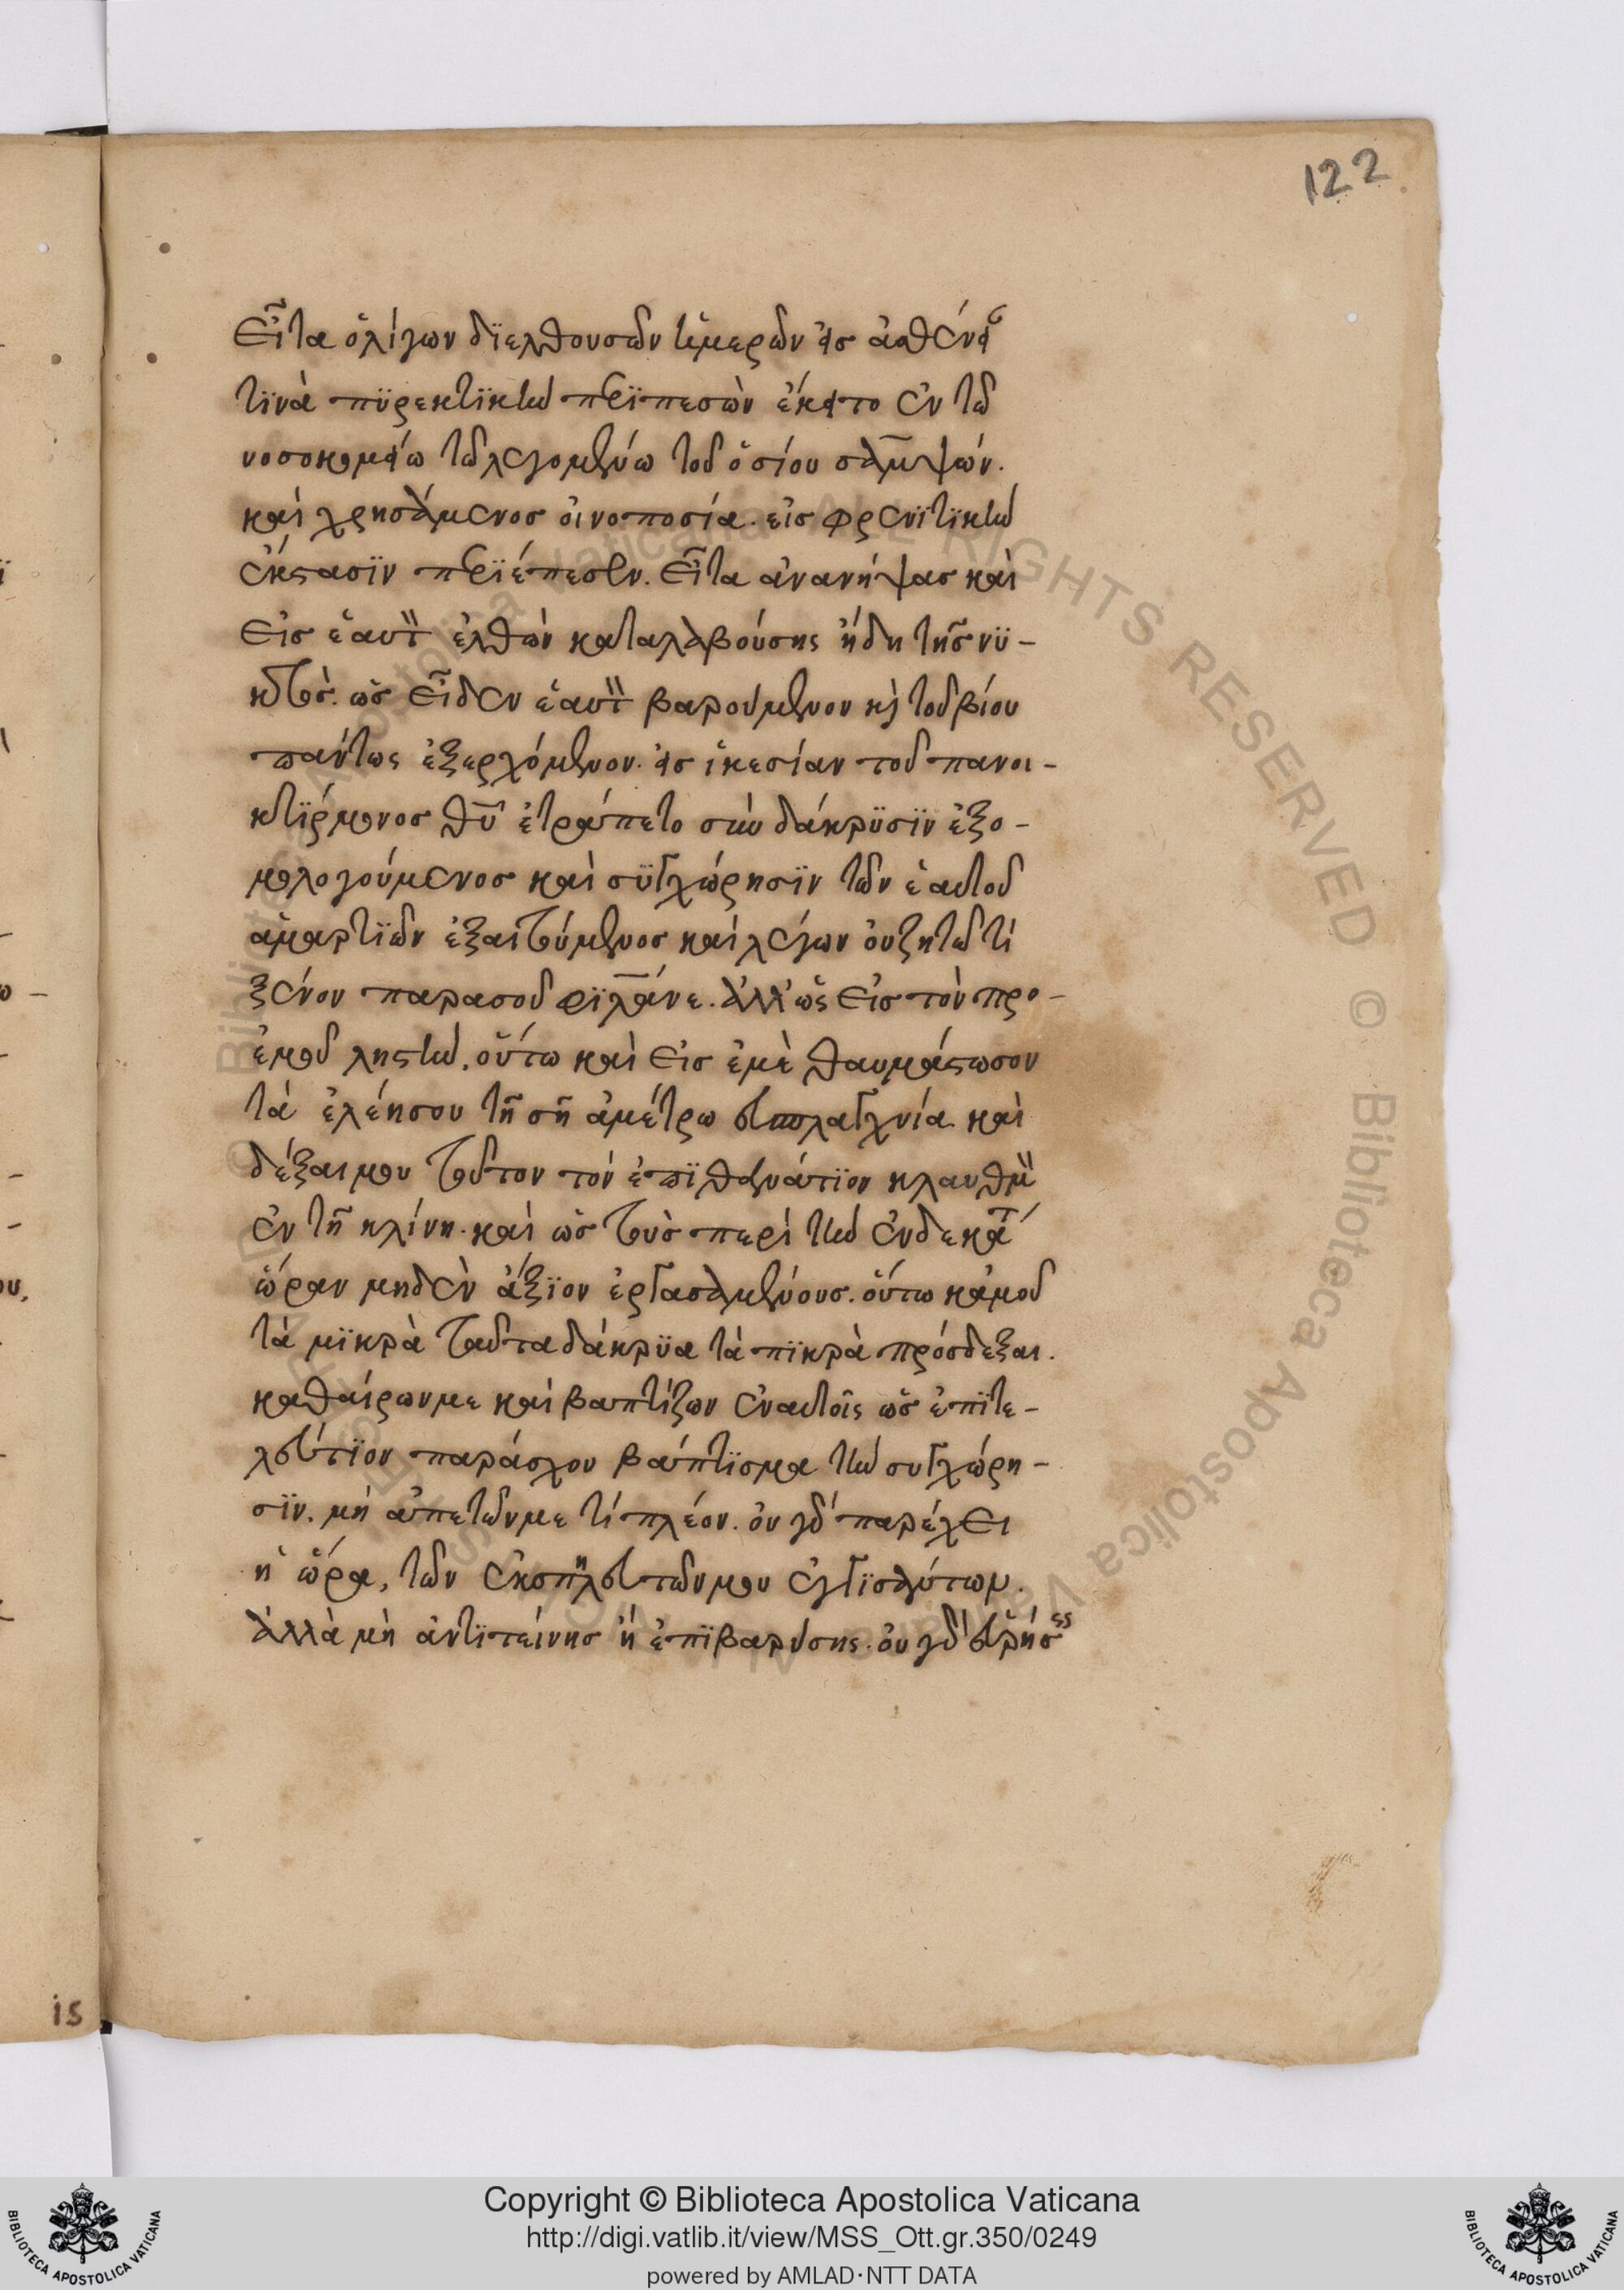 122
Εἶτα ὀλίγων διελθουσῶν ἡμερῶν εἰς ἀσθένειαν
τινὰ πυρεκτικὴν περιπεσὼν ἔκειτο ἐν τῶ
νοσοκομείω τῶ λεγομένω τοῦ ὁσίου σαμψών.
καὶ χρησάμενος οἰνοποσία. εἰς φρενιτικὴν
ἔκστασιν περιέπεσεν. Εἶτα ἀνανήψας καὶ
εἰς ἑαυτὸν ἐλθὼν καταλαβούσης ἤδη τῆς νυ-
κτός. ὡς εἶδεν ἑαυτὸν βαρούμενον καὶ τοῦ βίου
πάντως ἐξερχόμενον. εἰς ἱκεσίαν τοῦ πανοι-
κτίρμονος θυ ἐτράπετο σὺν δάκρυσιν ἐξο-
μολογούμενος καὶ συγχώρησιν τῶν ἑαυτοῦ
ἁμαρτιῶν ἐξαιτούμενος καὶ λέγων οὐ ζητῶ τί
ξένον παρα σοῦ φιλάνε. ἀλλ' ὡς εἰς τὸν προ-
ἐμοῦ ληστὴν. οὕτω καὶ εἰς ἐμὲ θαυμάστωσον
τὰ ἐλέη σου τῆ σῆ ἀμέτρω εὐσπλαγχνία. καὶ
δέξαι μου τοῦτον τὸν ἐπιθανάτιον κλαυθμὸν
ἐν τῆ κλίνη. καὶ ὡς τοὺς περὶ τὴν ἑνδεκάτην
ὥραν μηδὲν ἄξιον ἐργασαμένους. οὕτω κἀμοῦ
τὰ μικρὰ ταῦτα δάκρυα τὰ πικρὰ πρόσδεξαι.
καθαίρων με καὶ βαπτίζων ἐν αὐτοῖς ὡς ἐπιτε-
λεύτιον παράσχου βάπτισμα τὴν συγχώρη-
σιν. μὴ ἀπετῶν με τί πλέον. οὐ γὰρ παρέχει
ἡ ὥρα, τῶν ἐκσπηλευτῶν μου ἐγγισάντων.
ἀλλὰ μὴ ἀντιτείνης ἢ ἐπιβαρύσης. οὐ γὰρ εὑρήσεις
15
Copyright © Biblioteca Apostolica Vaticana
http://digi.vatlib.it/view/MSS_Ott.gr.350/0249
powered by AMLAD·NTT DATA
BIBLIOTECA APOSTOLICA VATICANA
BIBLIOTECA APOSTOLICA VATICANA